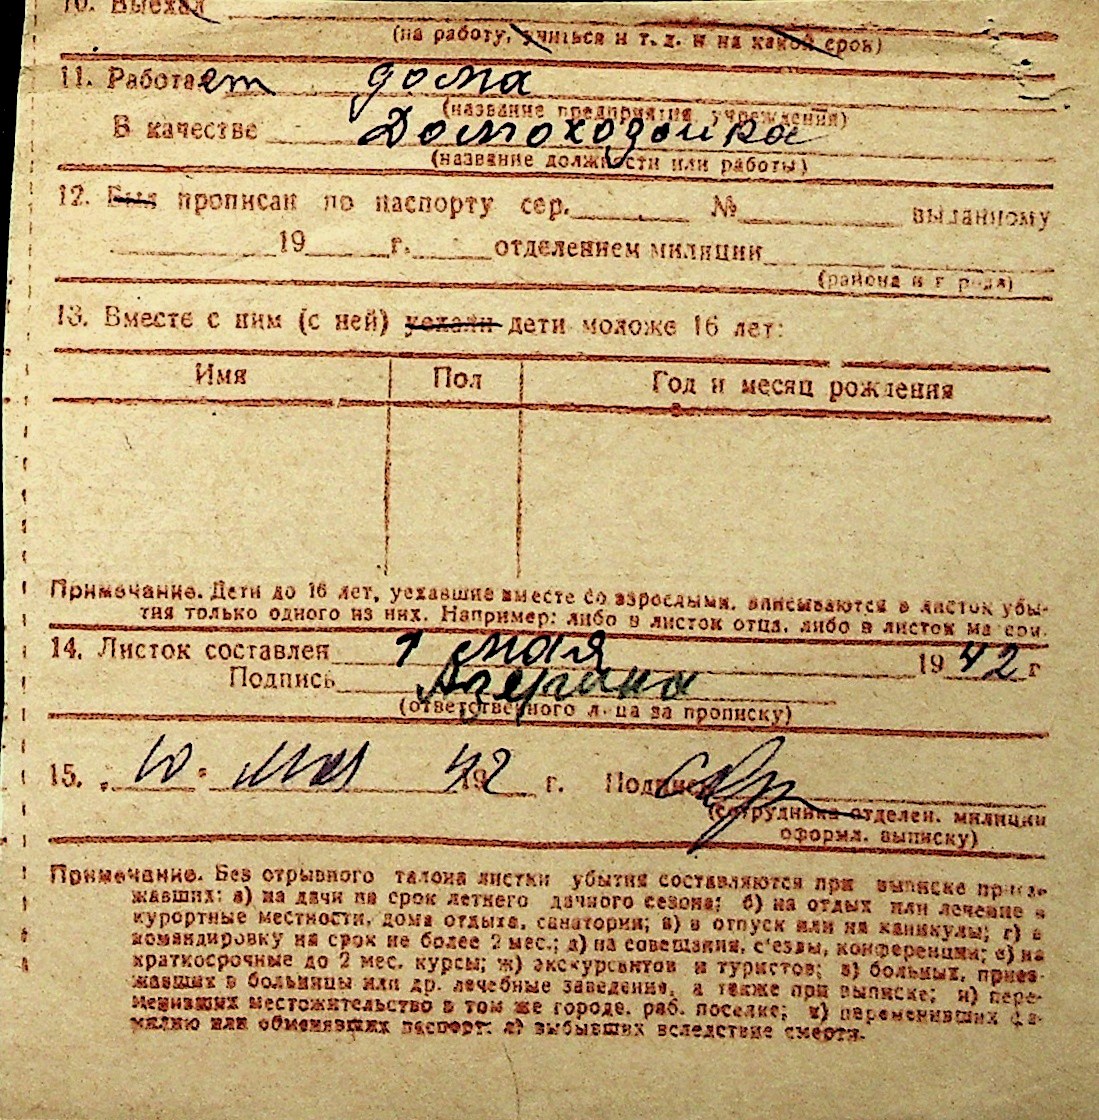 10. Выехал
(на работу, учиться и т. д. и на какой срок)
11. Работает дома
(название предприятия, учреждения)
В качестве Домохозяйка
(название должности или работы)
12. Был прописан по паспорту сер. № выданному
19 г. отделением милиции
(района и города)
13. Вместе с ним (с ней) уехали дети моложе 16 лет:
Имя Пол Год и месяц рождения
Примечание. Дети до 16 лет, уехавшие вместе со взрослыми, вписываются в листок убы-
тия только одного из них. Например: либо в листок отца, либо в листок матери.
14. Листок составлен 1 мая 1942 г
Подпись
(ответственного лица за прописку)
15. „10" мая 42 19 г. Подпись
(сотрудника отделен. милиции
оформл. выписку)
Примечание. Без отрывного талона листки убытия составляются при выписке приез-
жавших: а) на дачи на срок летнего дачного сезона; б) на отдых или лечение в
курортные местности, дома отдыха, санатории; в) в отпуск или на каникулы; г) в
командировку на срок не более 2 мес.; д) на совещания, с'езды, конференции; е) на
краткосрочные до 2 мес. курсы; ж) экскурсантов и туристов; з) больных, приез-
жавших в больницы или др. лечебные заведения, а также при выписке; и) пере-
менивших местожительство в том же городе, раб. поселке; к) переменивших фа-
милию или обменявших паспорт; л) выбывших вследствие смерти.